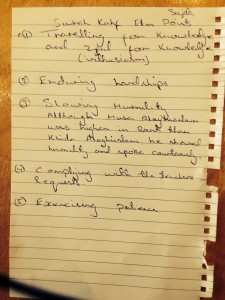 Surah Kahf Ilm Points
① Travelling for Knowledge
and zeal for Knowledge
(enthusiasm)
② Enduring hardships
③ Showing Humility
Although Musa Alayhisalam
was higher in Rank than
Khidr Alayhisalam, he showed
humility and spoke courteously.
④ Complying with the teachers
Request.
⑤ Exercising patience